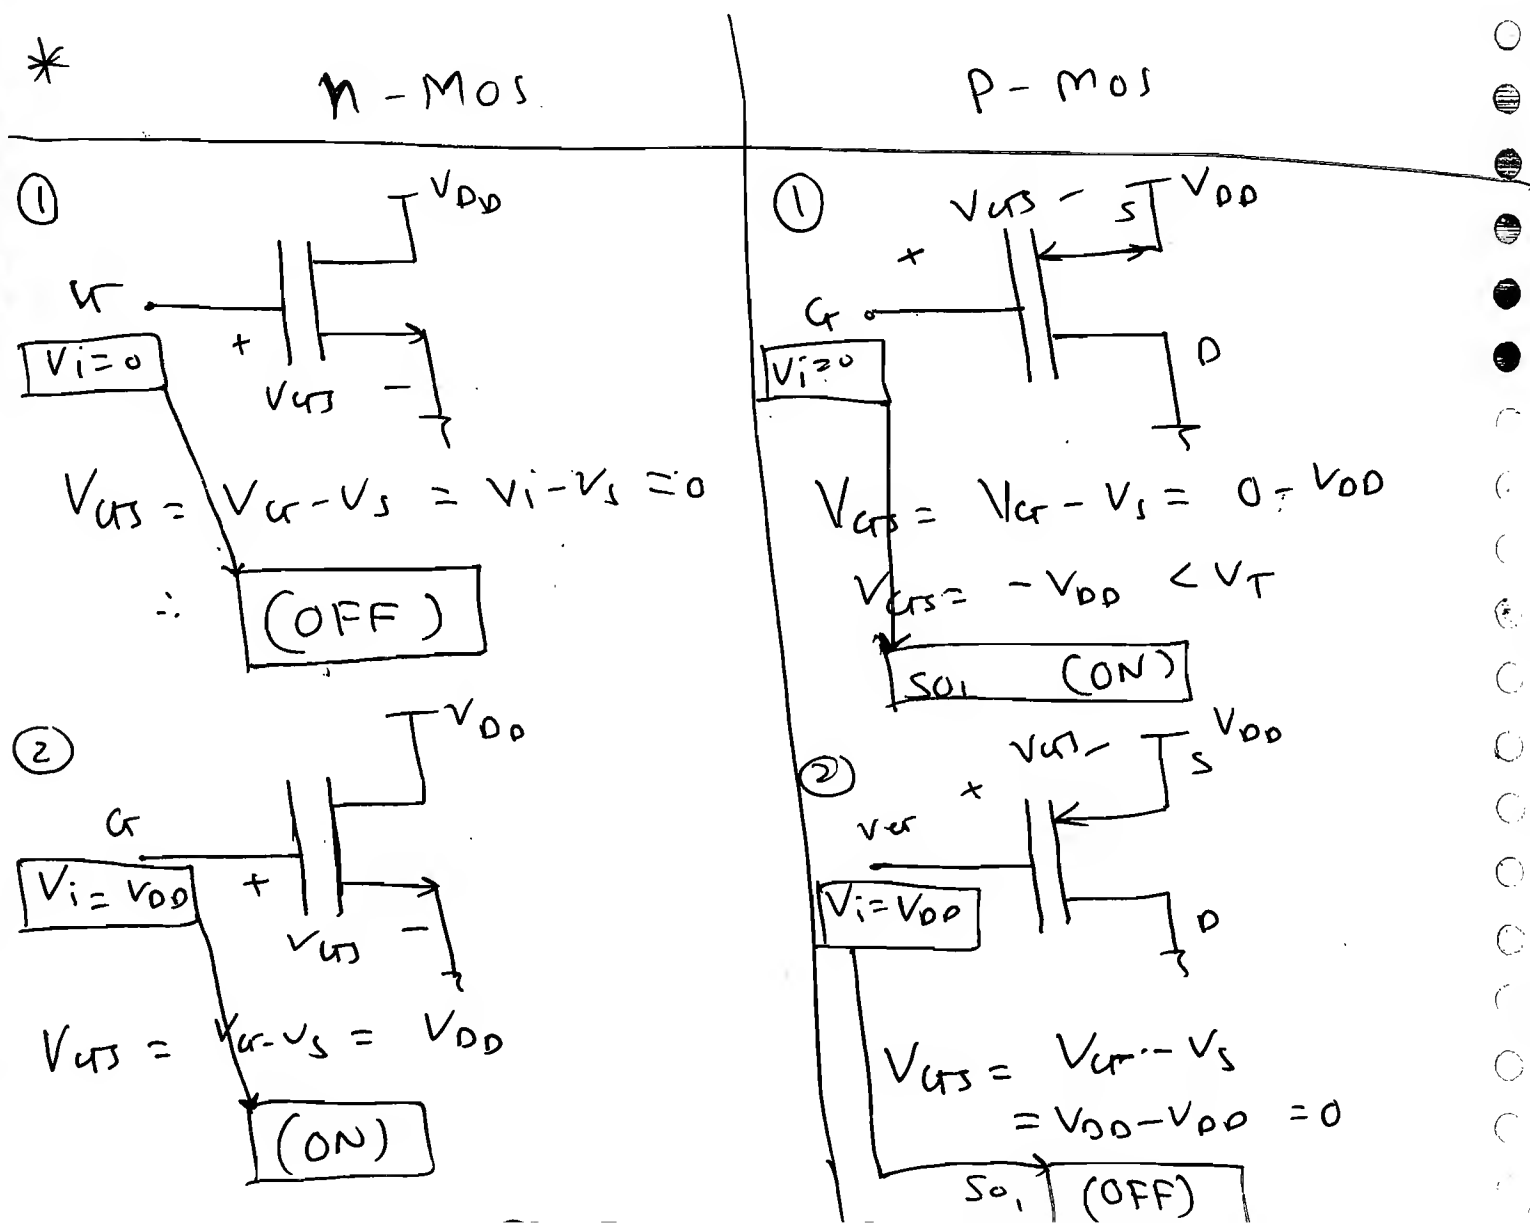 *
n - MOS
P - MOS
①
VDD
G
Vi = 0
+
VGS
-
VGS = VG - VS = Vi - VS = 0
∴ (OFF)
②
VDD
G
Vi = VDD
+
VGS
-
VGS = VG - VS = VDD
(ON)
①
VGS - S VDD
+
G
Vi = 0
D
VGS = VG - VS = 0 - VDD
VGS = - VDD < VT
so, (ON)
②
VGS - S VDD
+
VG
Vi = VDD
D
VGS = VG - VS
= VDD - VDD = 0
So, (OFF)